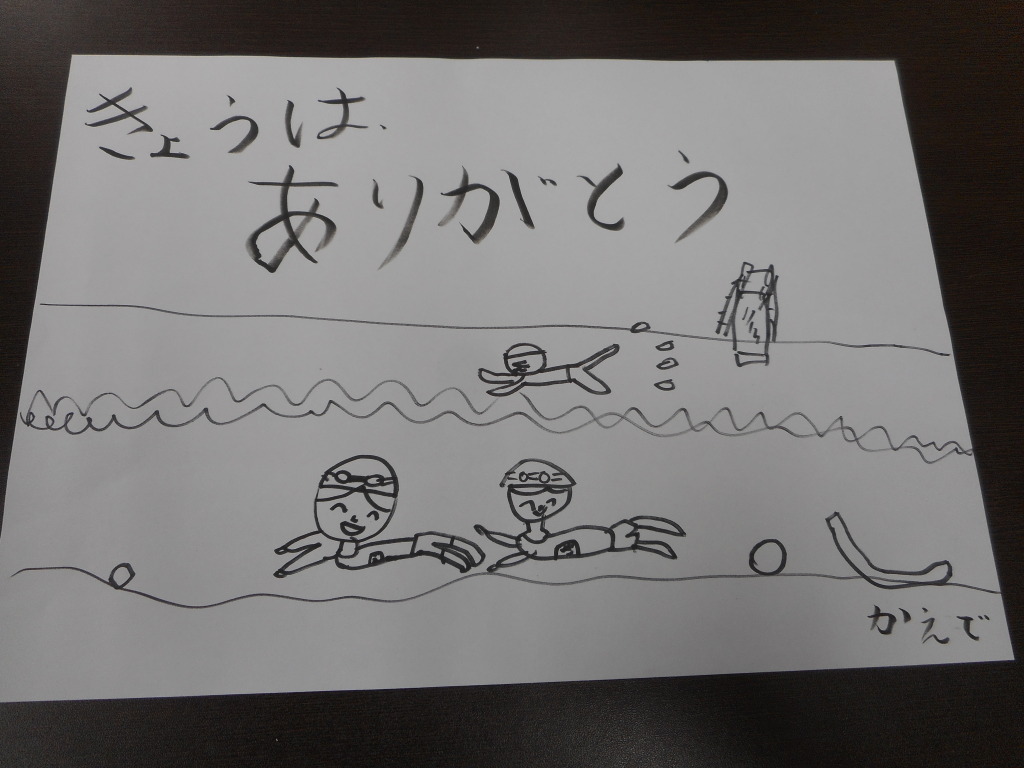 きょうは、
ありがとう
かえで